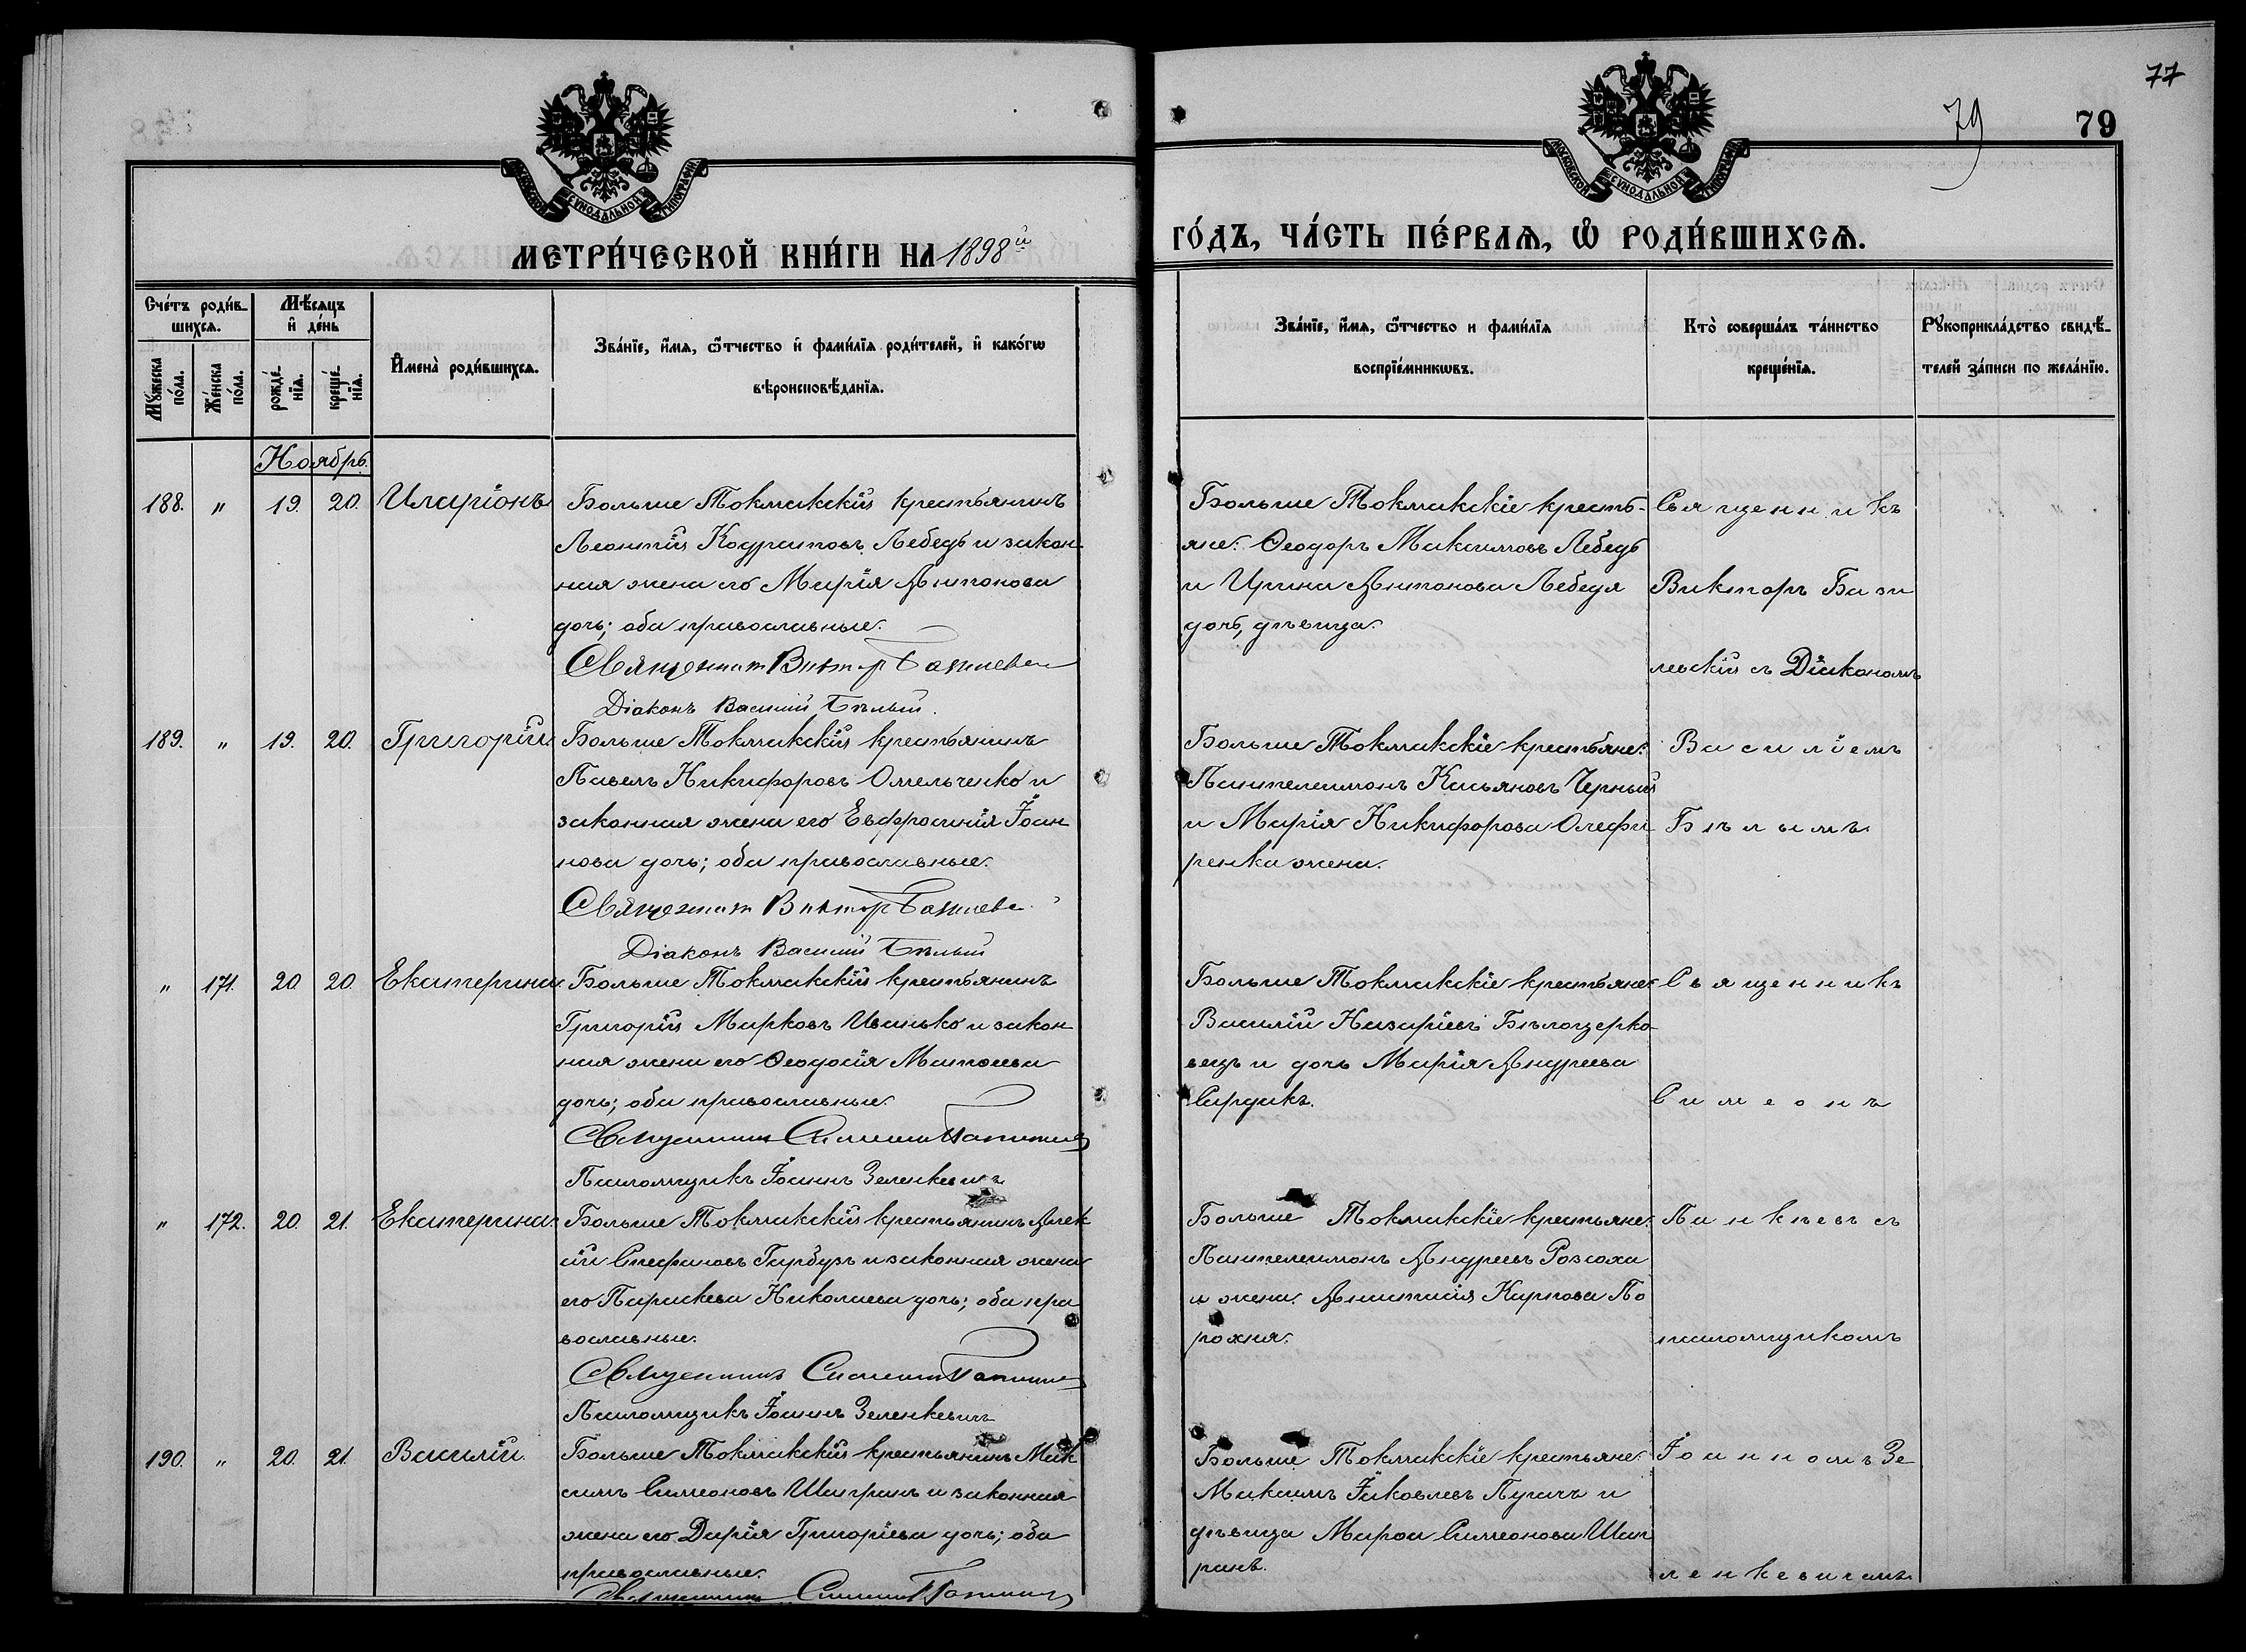 77
79
79
МЕТРИ́ЧЕСКОЙ КНИ́ГИ НА 1898й
ГО́ДЪ, ЧА́СТЬ ПЕ́РВАѦ, Ѡ҆ РОДИ́ВШИХСѦ.
Сче́тъ роди́в-
шихсѧ.
Мѣ́сяцъ
и҆ де́нь
Мꙋ́жеска
по́ла.
Же́нска
по́ла.
рожде́-
нїѧ.
креще́-
нїѧ.
И҆мена̀ роди́вшихсѧ.
Зва́нїе, и҆́мѧ, ѻ҆́тчество и҆ фами́лїѧ роди́телей, и҆ како́гѡ
вѣроисповѣ́данїѧ.
Зва́нїе, и҆́мѧ, ѻ҆́тчество и фами́лїѧ
воспрїе́мникѡвъ.
Кто̀ соверша́лъ та́инство
креще́нїѧ.
Рꙋкоприкла́дство свидѣ́-
телей за́писи по жела́нїю.
Ноябрь.
188. „ 19. 20. Иларіонъ
Больше Токмакскій крестьянинъ
Леонтій Кодратовъ Лебедь и закон
ная жена его Марія Антонова
дочь; оба православные.
Священник Виктор Базилевс
Діаконъ Василій Бѣлый.
Больше Токмакскіе кресть-
яне: Ѳеодоръ Максимовъ Лебедь
и Ирина Антонова Лебедя
дочь, дѣвица.
Священникъ
Викторъ Бази
левскій съ Діакономъ
189. „ 19. 20. Григорій
Больше Токмакскій крестьянинъ
Павелъ Никифоровъ Омельченко и
законная жена его Евфросинія Іоан
нова дочь; оба православные.
Священник Виктор Базилевс
Діаконъ Василій Бѣлый
Больше Токмакскіе крестьяне:
Пантелеимонъ Касьяновъ Черный
и Марія Никифорова Олефи
ренка жена.
Василіемъ
Бѣлымъ
„ 171. 20. 20. Екатерина
Больше Токмакскій крестьянинъ
Григорій Марковъ Иванько и закон
ная жена его Ѳеодосія Матѳеева
дочь; оба православные.
Священникъ Симеон Панкѣев
Псаломщикъ Іоаннъ Зеленкевичъ
Больше Токмакскіе крестьяне:
Василій Назаріевъ Бѣлоцерко
вецъ и дочь Марія Андреева
Сирдикъ.
Священникъ
Симеонъ
„ 172. 20. 21. Екатерина
Больше Токмакскій крестьянинъ Алек
сій Стефановъ Гарбузъ и законная жена
его Параскева Николаева дочь; оба пра
вославные.
Священникъ Симеон Панкѣев
Псаломщикъ Іоаннъ Зеленкевичъ
Больше Токмакскіе крестьяне:
Пантелеимонъ Андреевъ Розсоха
и жена. Анастасія Карпова По
рохня.
Панкѣевъ съ
псаломщикомъ
190. „ 20. 21. Василій
Больше Токмакскій крестьянинъ Мак
симъ Симеоновъ Шапранъ и законная
жена его Дарія Григоріева дочь; оба
православные.
Священникъ Симеон Панкѣев
Больше Токмакскіе крестьяне:
Максимъ Іаковлевъ Пугачъ и
дѣвица Марѳа Симеонова Шап
ранъ.
Іоанномъ Зе
ленкевичемъ